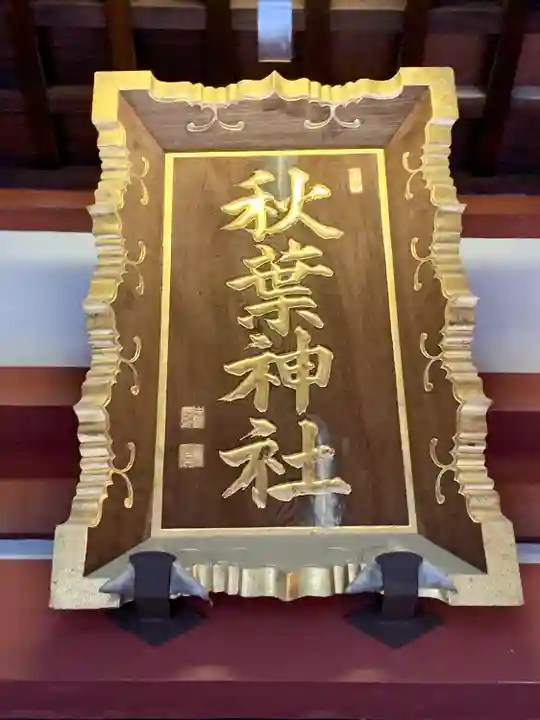 秋葉神社